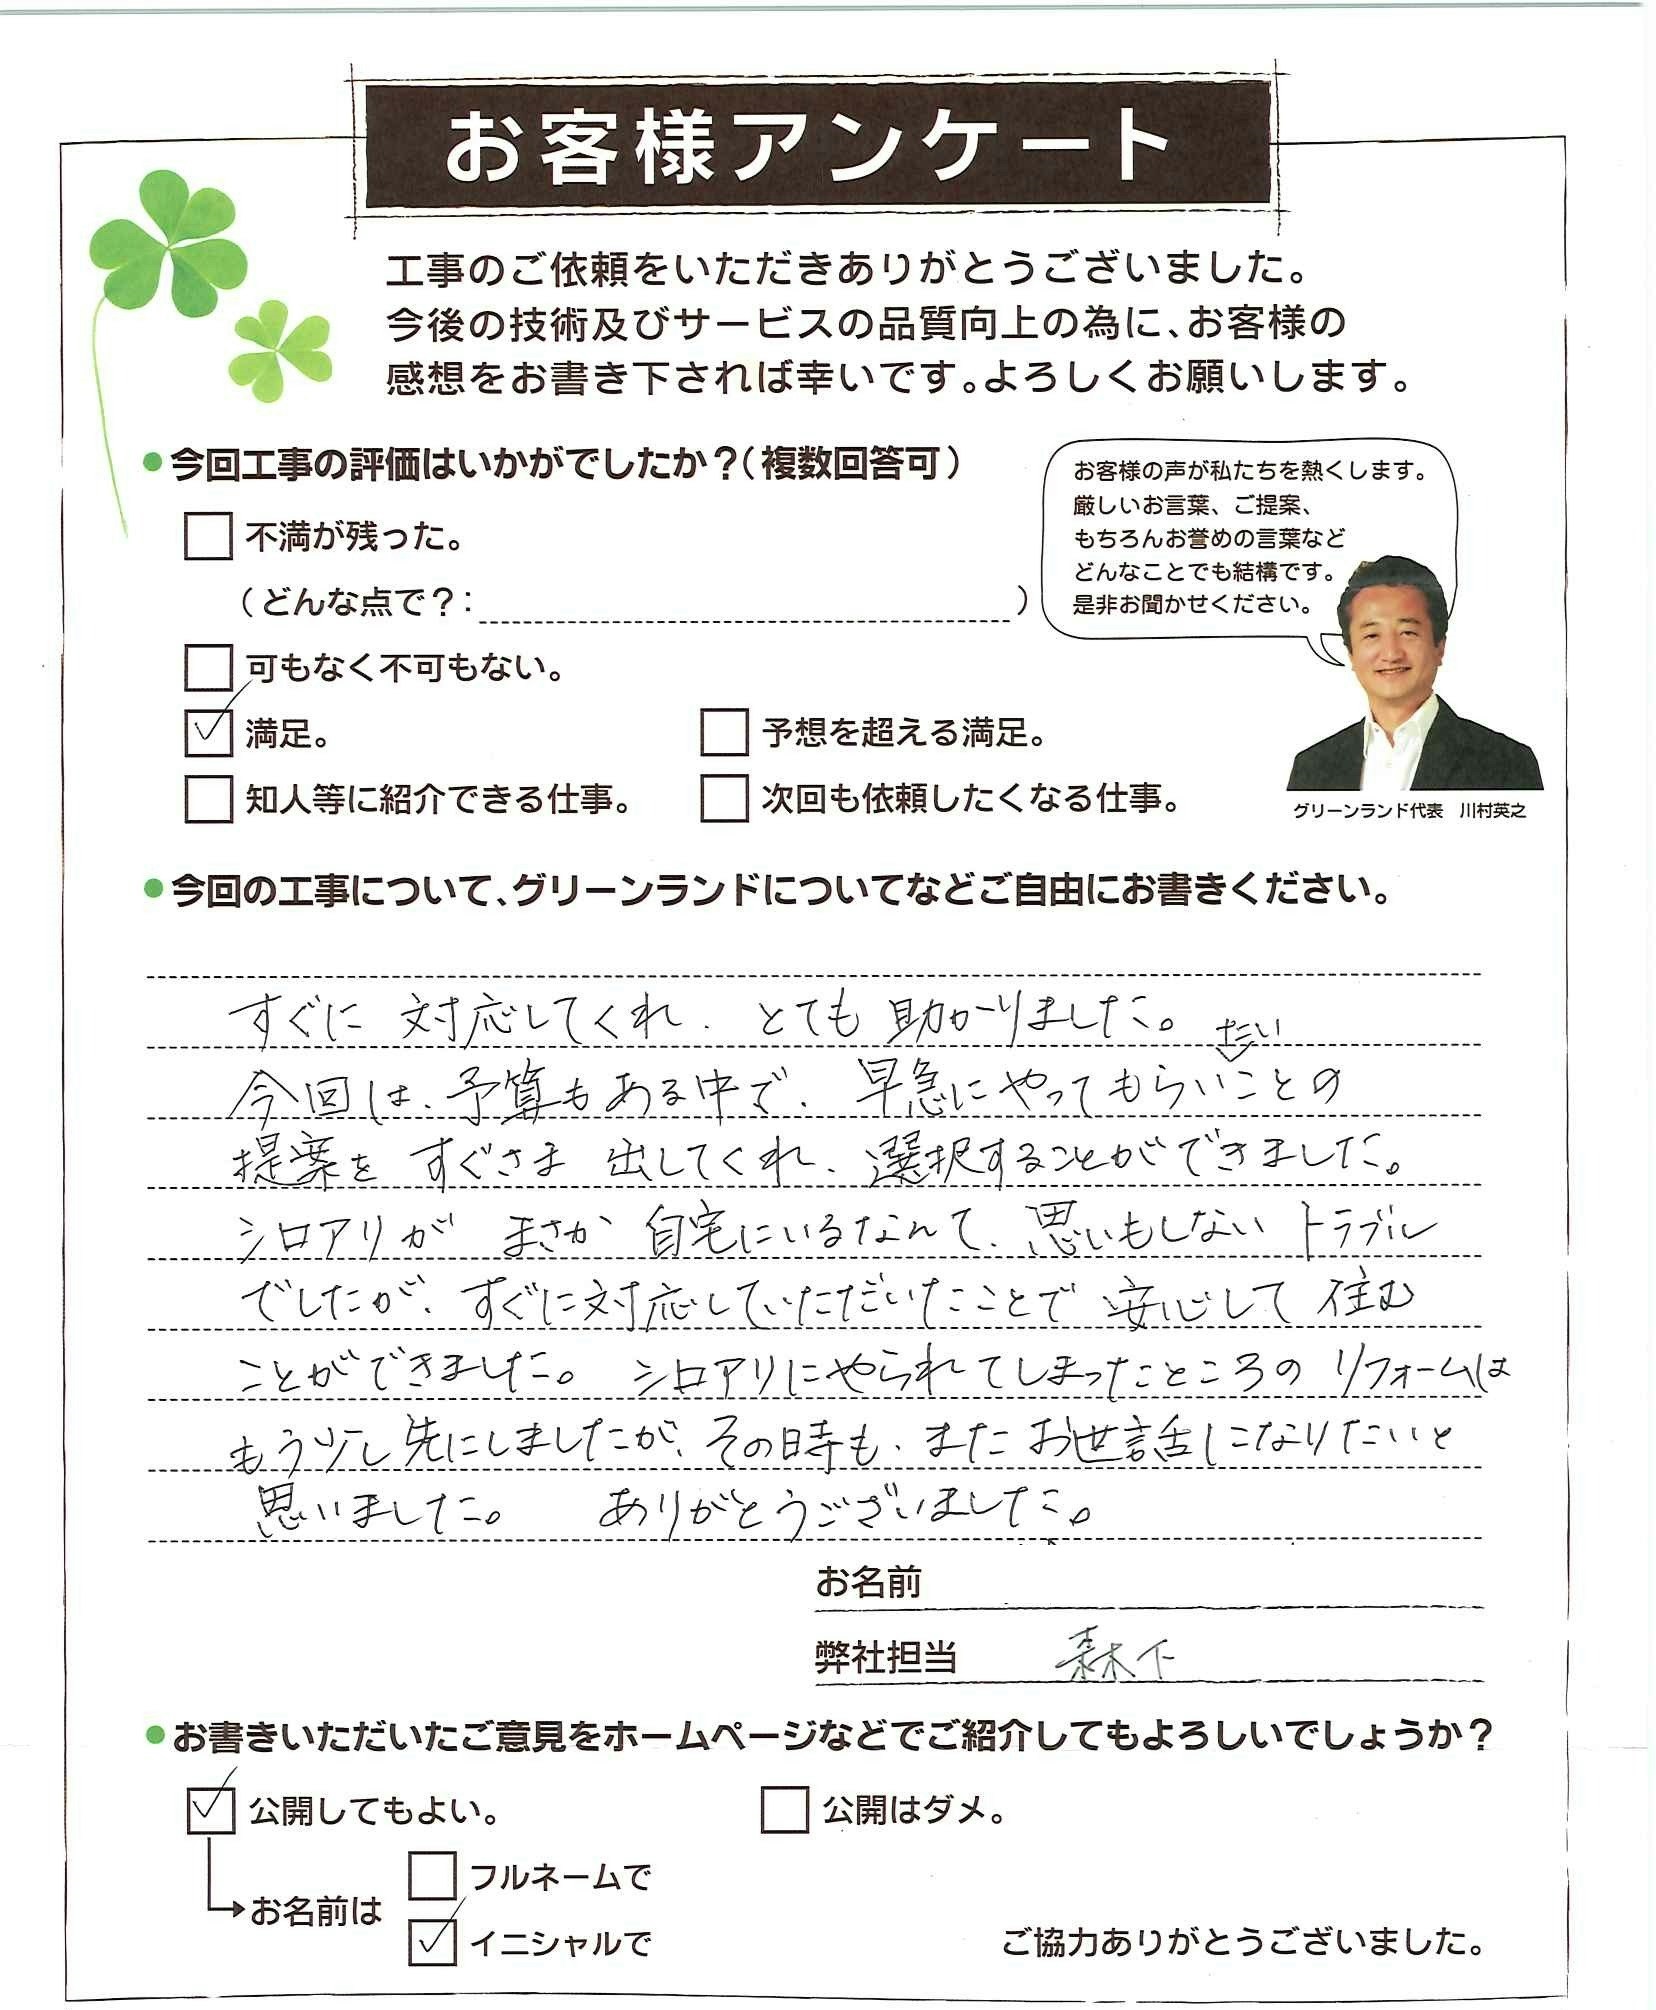 お客様アンケート
工事のご依頼をいただきありがとうございました。
今後の技術及びサービスの品質向上の為に、お客様の
感想をお書き下されば幸いです。よろしくお願いします。
●今回工事の評価はいかがでしたか？（複数回答可）
不満が残った。
（どんな点で？：　）
可もなく不可もない。
満足。
予想を超える満足。
知人等に紹介できる仕事。
次回も依頼したくなる仕事。
お客様の声が私たちを熱くします。
厳しいお言葉、ご提案、
もちろんお誉めの言葉など
どんなことでも結構です。
是非お聞かせください。
グリーンランド代表　川村英之
●今回の工事について、グリーンランドについてなどご自由にお書きください。
すぐに対応してくれ、とても助かりました。
たい
今回は、予算もある中で、早急にやってもらいことの
提案をすぐさま出してくれ、選択することができました。
シロアリがまさか自宅にいるなんて、思いもしないトラブル
でしたが、すぐに対応していただいたことで安心して住む
ことができました。シロアリにやられてしまったところのリフォームは
もう少し先にしましたが、その時も、またお世話になりたいと
思いました。　ありがとうございました。
お名前
弊社担当　森下
●お書きいただいたご意見をホームページなどでご紹介してもよろしいでしょうか？
公開してもよい。
公開はダメ。
お名前は
フルネームで
イニシャルで
ご協力ありがとうございました。